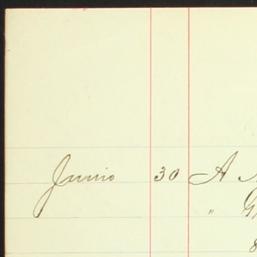 Junio 30 A
"